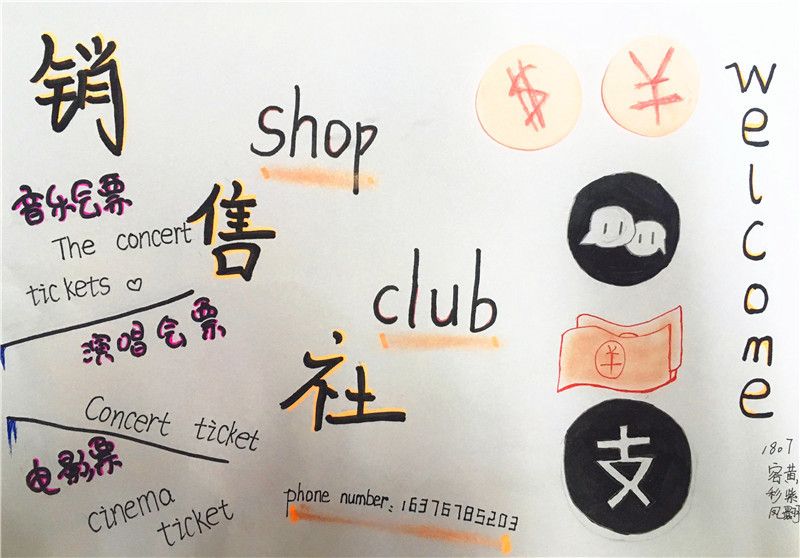 销售社
shop
club
音乐会票
The concert
tickets
演唱会票
Concert ticket
电影票
cinema
ticket
phone number: 16376785203
$
¥
¥
支
welcome
1807